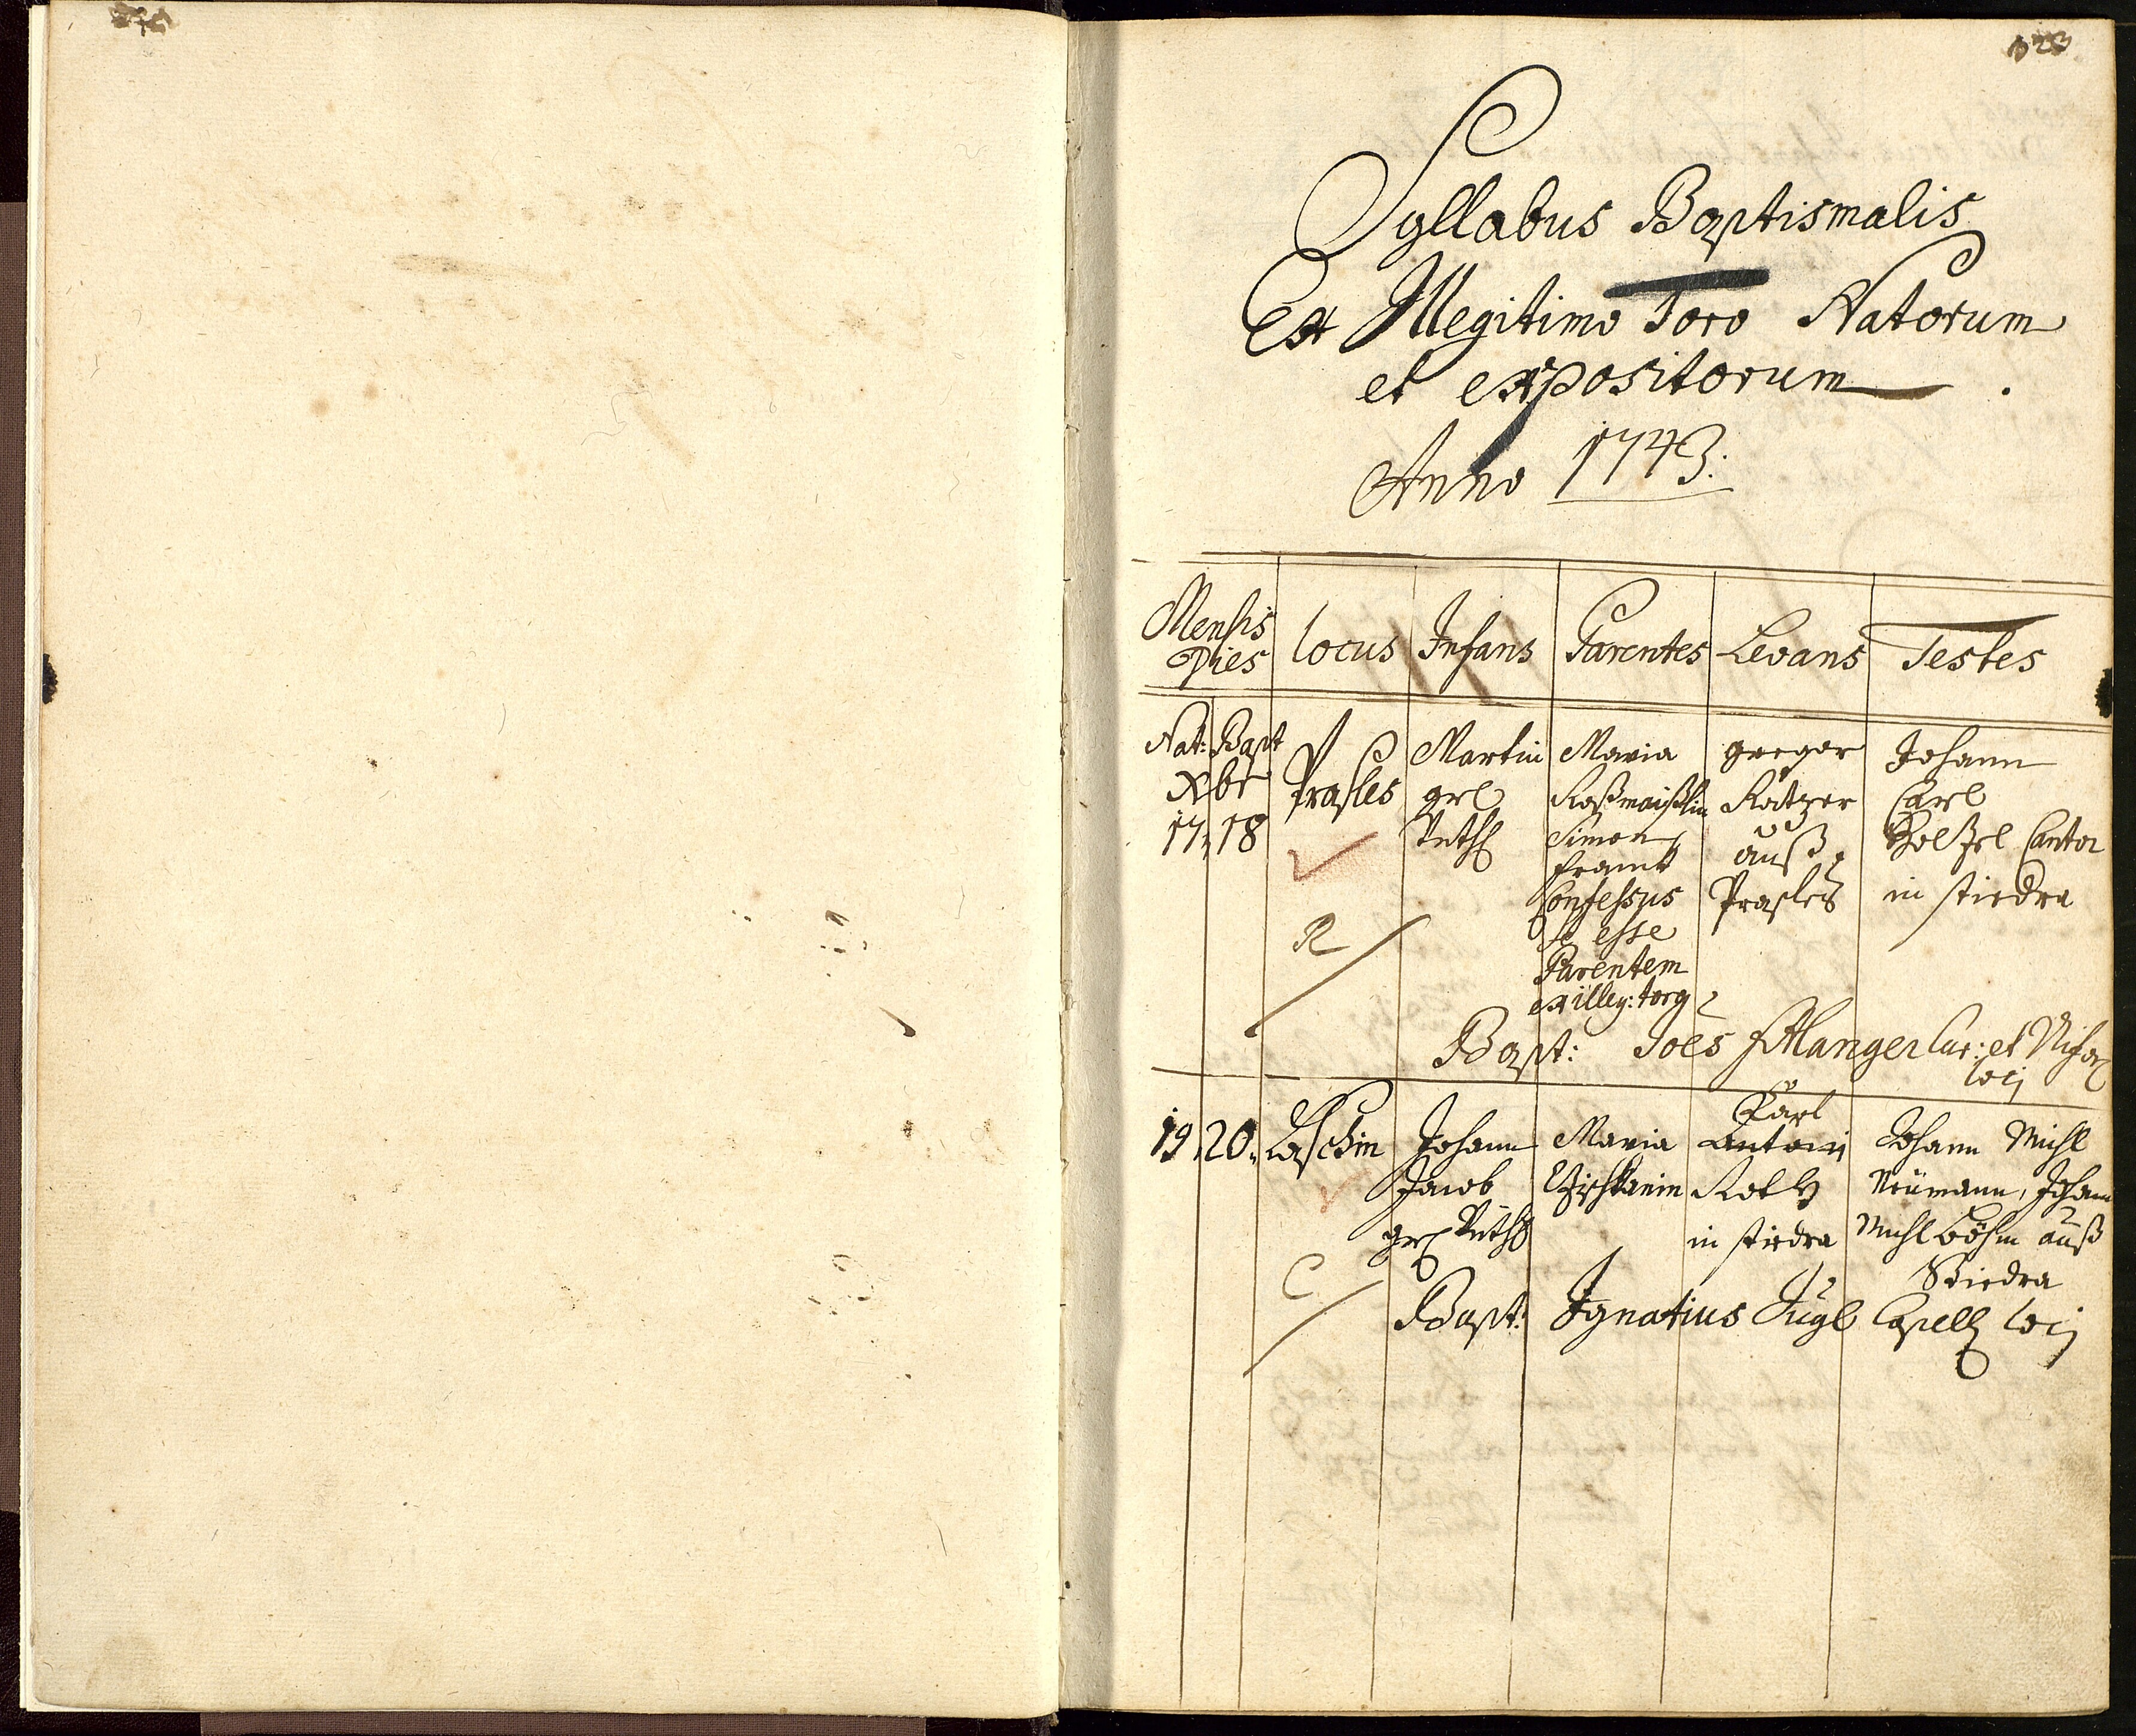 Syllabus Baptismalis
Ex Illegitimo Toro Natorum
et expositorum.
Anno 1743.
Mensis Dies | locus | Infans | Parentes | Levans | Testes
Nat: Bapt
Xbr
17, 18
Prasles
Martin
Maria
Roßmaißlin
Simon
Confessus
se esse
Parentem
ex illeg: toro
gregor
Ratzer
auß
Prasles
Johann
Carl
Cantor
in stiedra
R
Bapt: Joes Manger Cur: et
loci
19, 20.
Laschin
Johann
Jacob
Maria
Carl
Antoni
in stiedra
Johann Michl
Neumann, Johann
Michl Böhm auß
Stiedra
C
Bapt: Ignatius Jugl Capell loci